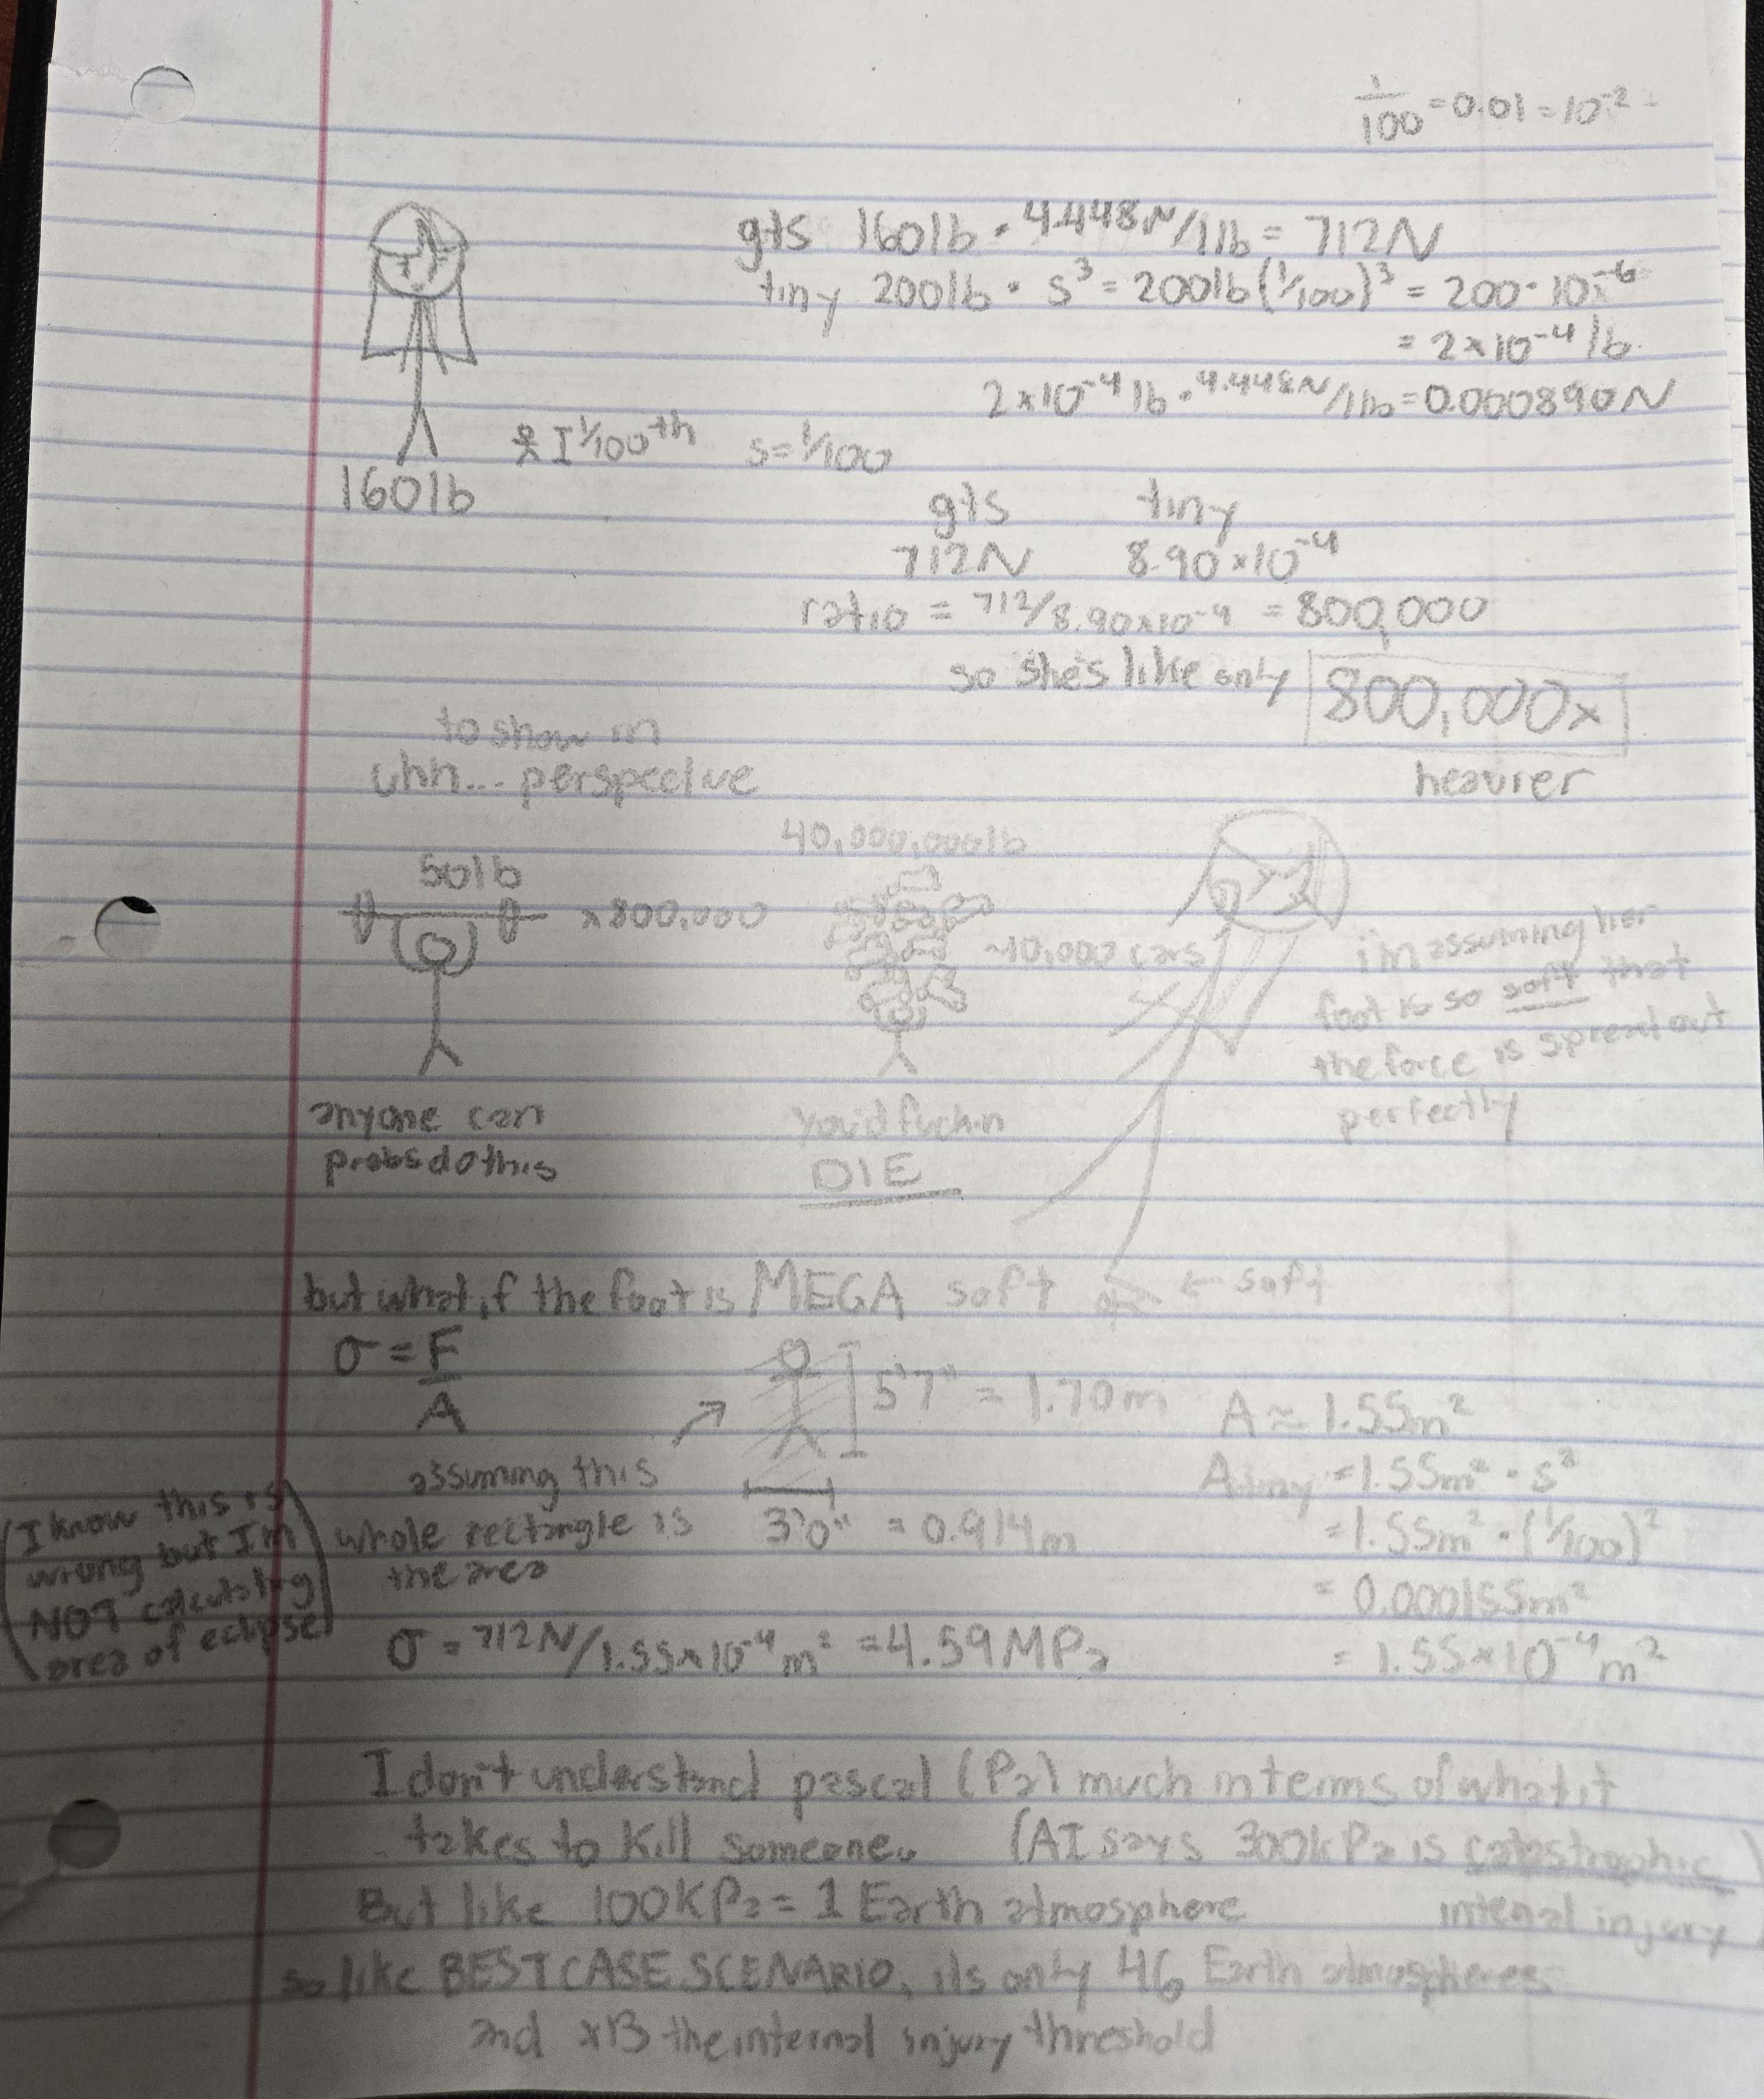 1/100 = 0.01 = 10⁻²
gts 160lb · 4.448N/1lb = 712N
tiny 200lb · s³ = 200lb(1/100)³ = 200 · 10⁻⁶
= 2×10⁻⁴ lb
2×10⁻⁴ lb · 4.448N/1lb = 0.000890N
I 1/100th s = 1/100
160lb
gts tiny
712N 8.90×10⁻⁴
ratio = 712/8.90×10⁻⁴ = 800,000
so she's like only 800,000x
heavier
to show in
uhh... perspective
50lb
×800,000
40,000,000lb
~10,000 cars
i'm assuming her
foot is so soft that
the force is spread out
perfectly
anyone can
probs do this
You'd fuckn
DIE
but what if the foot is MEGA soft ← soft
σ = F/A
5'7" = 1.70m
3'0" = 0.914m
assuming this
whole rectangle is
the area
(I know this is
wrong but I'm
NOT calculating
area of eclipse)
A ≈ 1.55m²
A tiny = 1.55m² · s²
= 1.55m² · (1/100)²
= 0.000155m²
= 1.55×10⁻⁴ m²
σ = 712N/1.55×10⁻⁴ m² = 4.59MPa
I don't understand pascal (Pa) much in terms of what it
takes to kill someone. (AI says 300kPa is catastrophic
internal injury)
But like 100KPa = 1 Earth atmosphere
so like BEST CASE SCENARIO, its only 46 Earth atmospheres
and ×13 the internal injury threshold